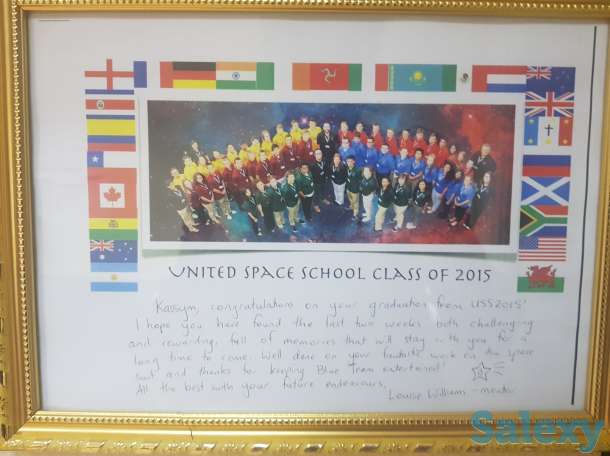 UNITED SPACE SCHOOL CLASS OF 2015
Kassym, congratulations on your graduation from USS2015!
I hope you have found the last two weeks both challenging
and rewarding, full of memories that will stay with you for a
long time to come. Well done on your fantastic work on the space
suit and thanks for keeping Blue Team entertained!
All the best with your future endeavours,
Louise Williams - mentor
Salexy